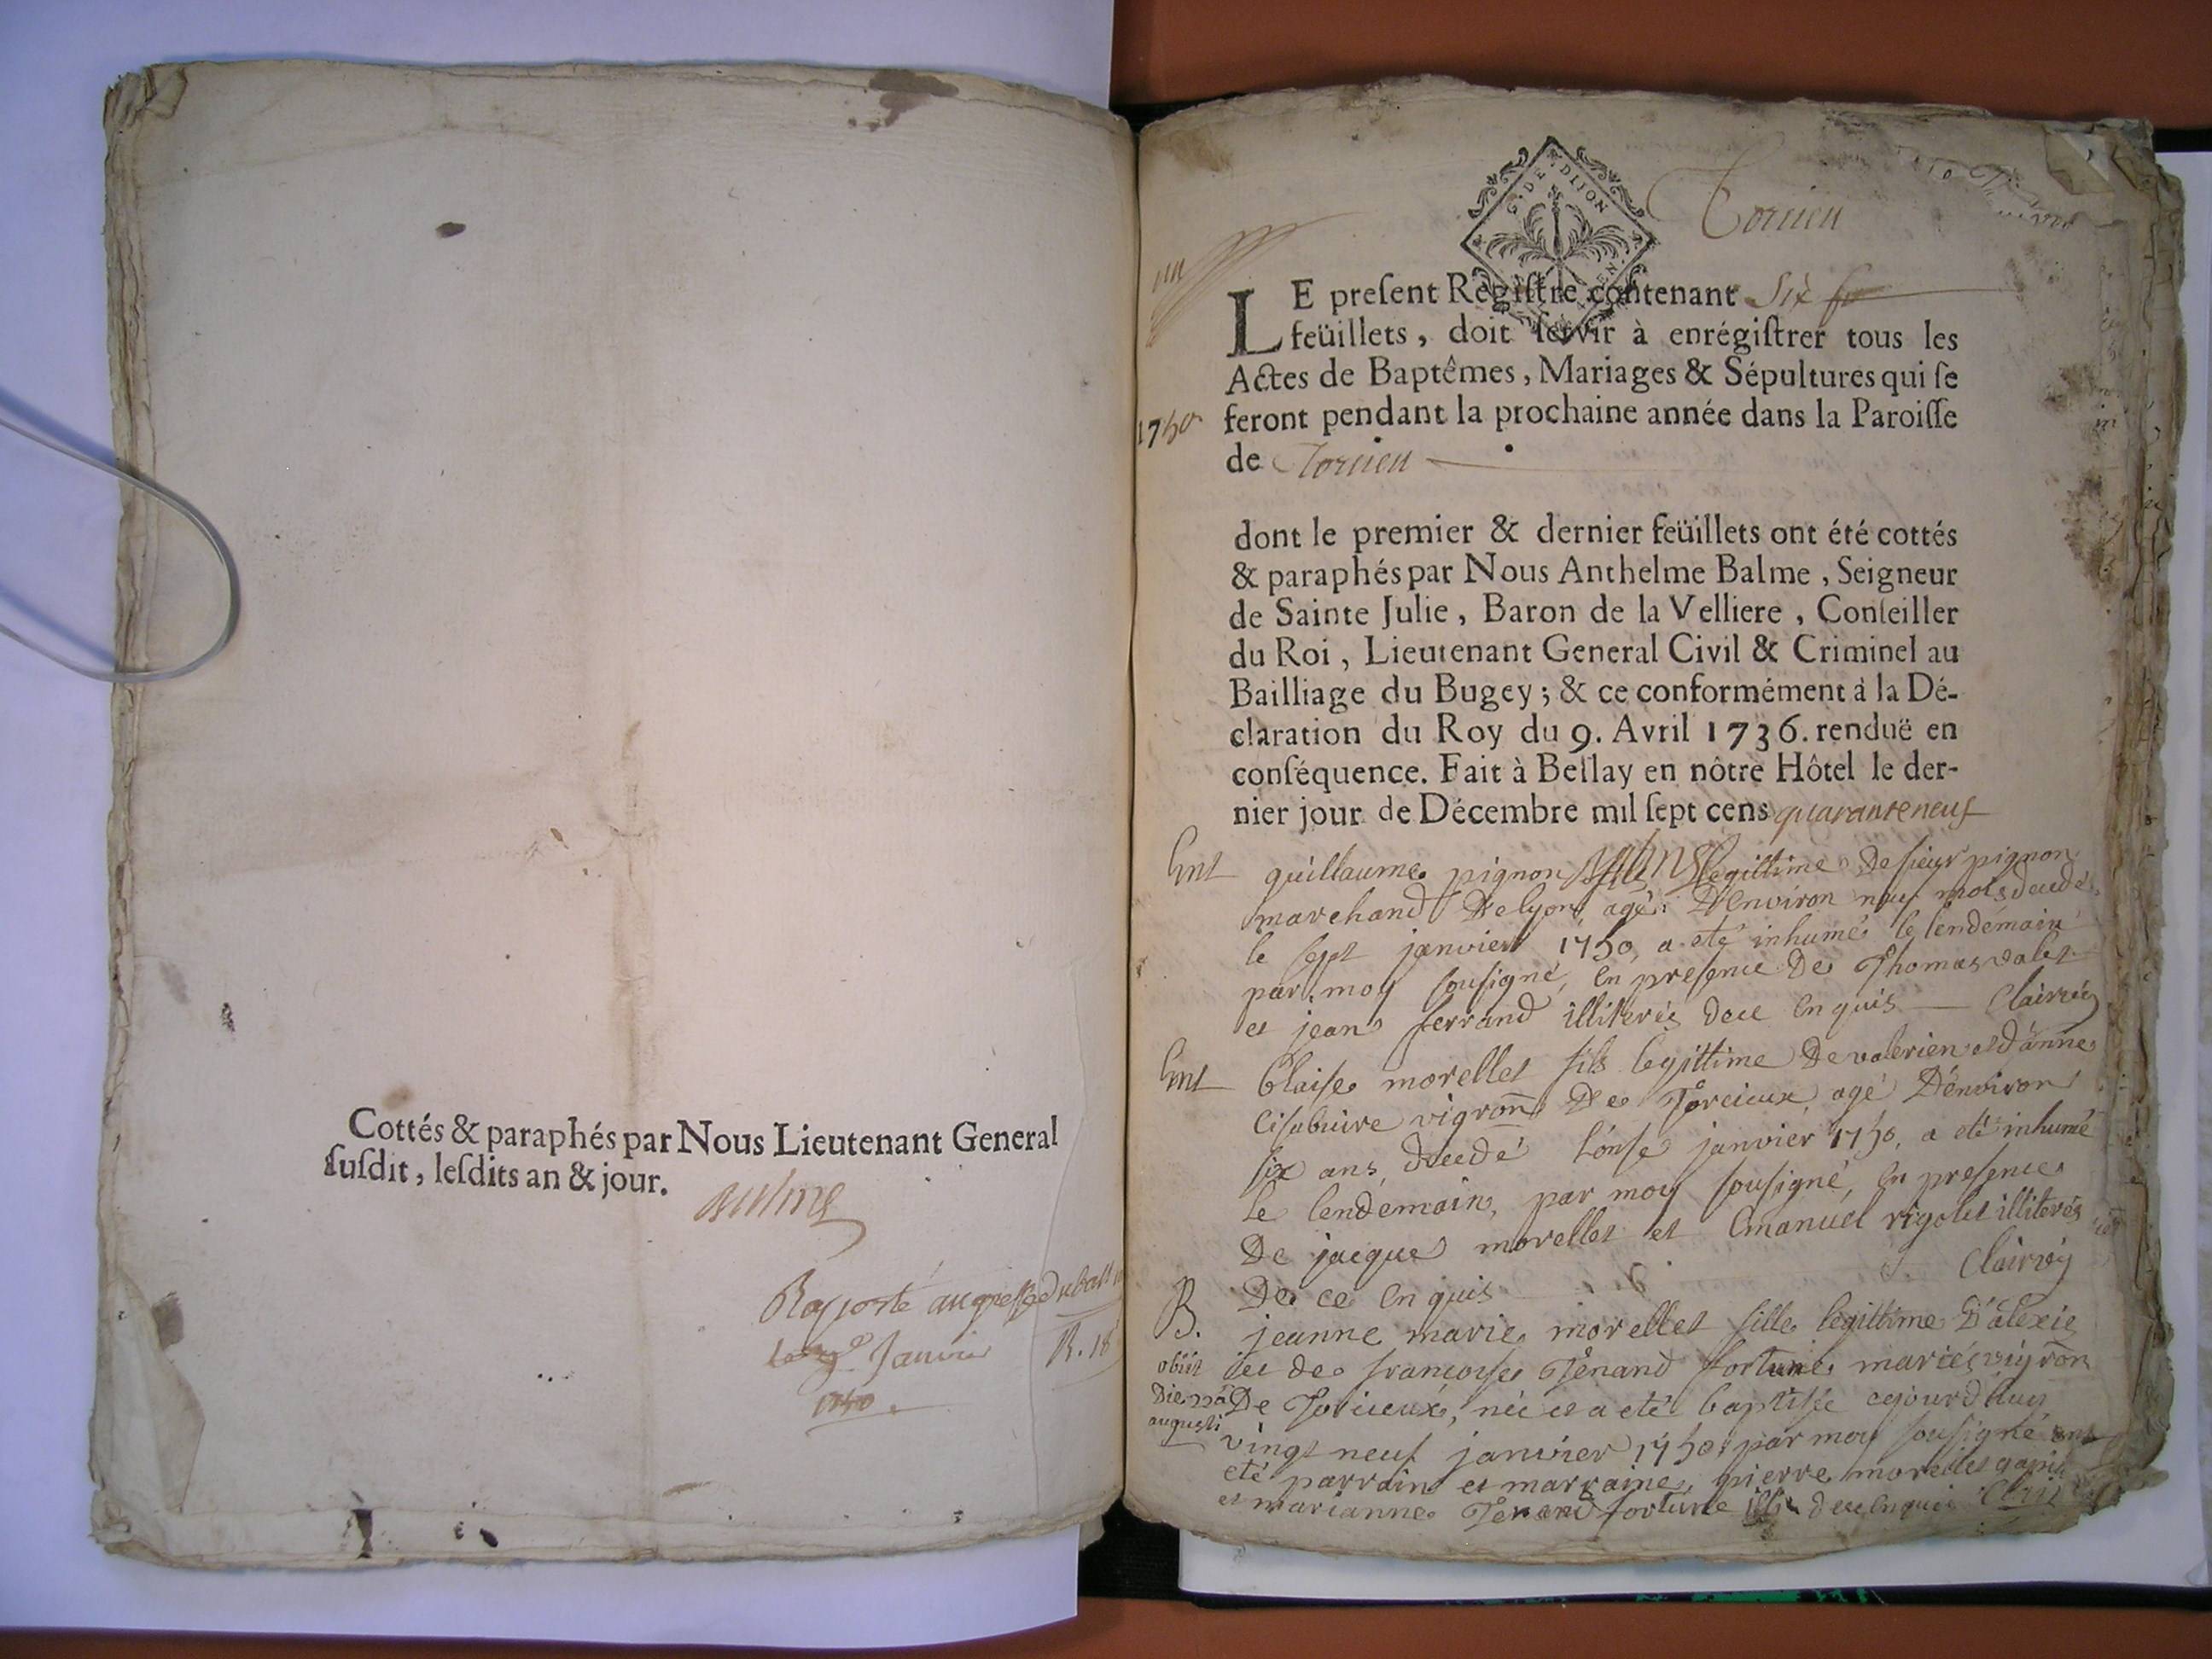 Cottés & paraphés par Nous Lieutenant General
ſuſdit, leſdits an & jour.
Balme
Rapporté au greffe du
Janvier
1750.
R. 18
G. DE DIJON
Torcieu
un
LE preſent Regiſtre contenant Six
feüillets, doit ſervir à enrégiſtrer tous les
Actes de Baptêmes, Mariages & Sépultures qui ſe
1750
feront pendant la prochaine année dans la Paroiſſe
de Torcieu
dont le premier & dernier feüillets ont été cottés
& paraphés par Nous Anthelme Balme, Seigneur
de Sainte Julie, Baron de la Velliere, Conſeiller
du Roi, Lieutenant General Civil & Criminel au
Bailliage du Bugey; & ce conformément à la Dé-
claration du Roy du 9. Avril 1736. renduë en
conſéquence. Fait à Bellay en nôtre Hôtel le der-
nier jour de Décembre mil ſept cens quaranteneuf
Balme
Ent guillaume pignon legittime De sieur pignon
marchand De lyon, agé D'environ neuf mois decedé
le sept janvier 1750, a eté inhumé le lendemain
par moy sousigné, en presence De Thomas valet
et jean ferrand illiterés de ce enquis — Clairvy
Ent blaise morellet fils legittime De valerien et d'anne
vigron De Torcieux, agé D'environ
six ans, decedé l'onse janvier 1750, a eté inhumé
le lendemain, par moy sousigné, en presence
De jacque morellet et Emanuel rigolet illiterés
De ce enquis Clairvy
B. jeanne marie morellet fille legittime D'alexie
obiit et de françoyse Tenand fortune mariés vigron
Die 22a De Torcieux, née et a eté baptisée cejourd'huy
augusti vingt neuf janvier 1750, par moy sousigné ont
eté parrain et marraine, pierre morellet
et marianne Tenand fortune ille de ce enquis